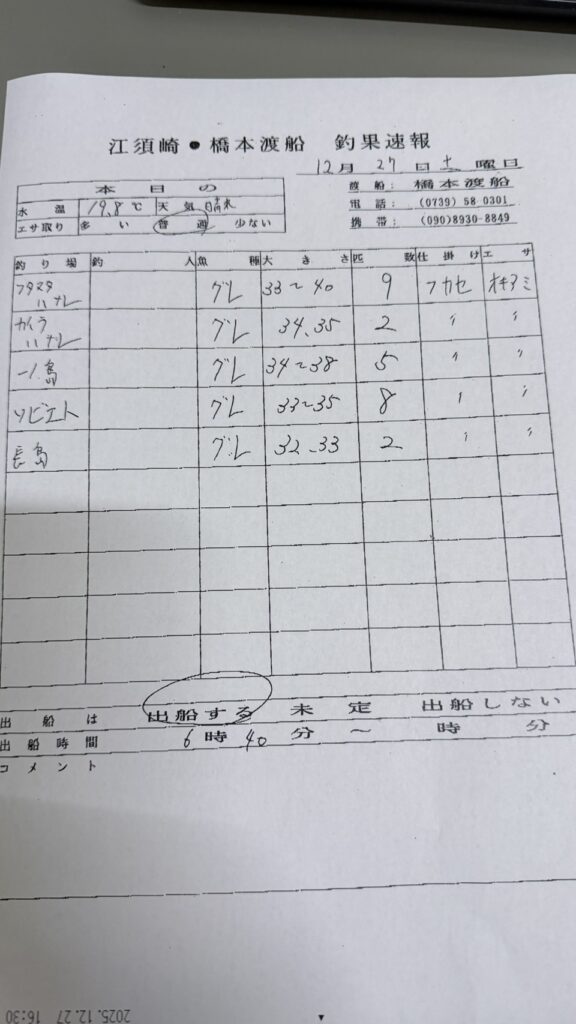 江須崎●橋本渡船 釣果速報
12月 27 日 土 曜日
本日の
水温 19.8℃ 天気 晴れ
エサ取り 多い 普通 少ない
渡船: 橋本渡船
電話: (0739) 58 0301
携帯: (090)8930-8849
釣り場 釣人 魚種 大きさ 匹数 仕掛け エサ
フタマタハナレ グレ 33〜40 9 フカセ オキアミ
カイラハナレ グレ 34.35 2 〃 〃
一ノ島 グレ 34〜38 5 〃 〃
ソビエト グレ 33〜35 8 〃 〃
長島 グレ 32.33 2 〃 〃
出船は 出船する 未定 出船しない
出船時間 6時 40分〜 時 分
コメント
2025.12.27 16:30